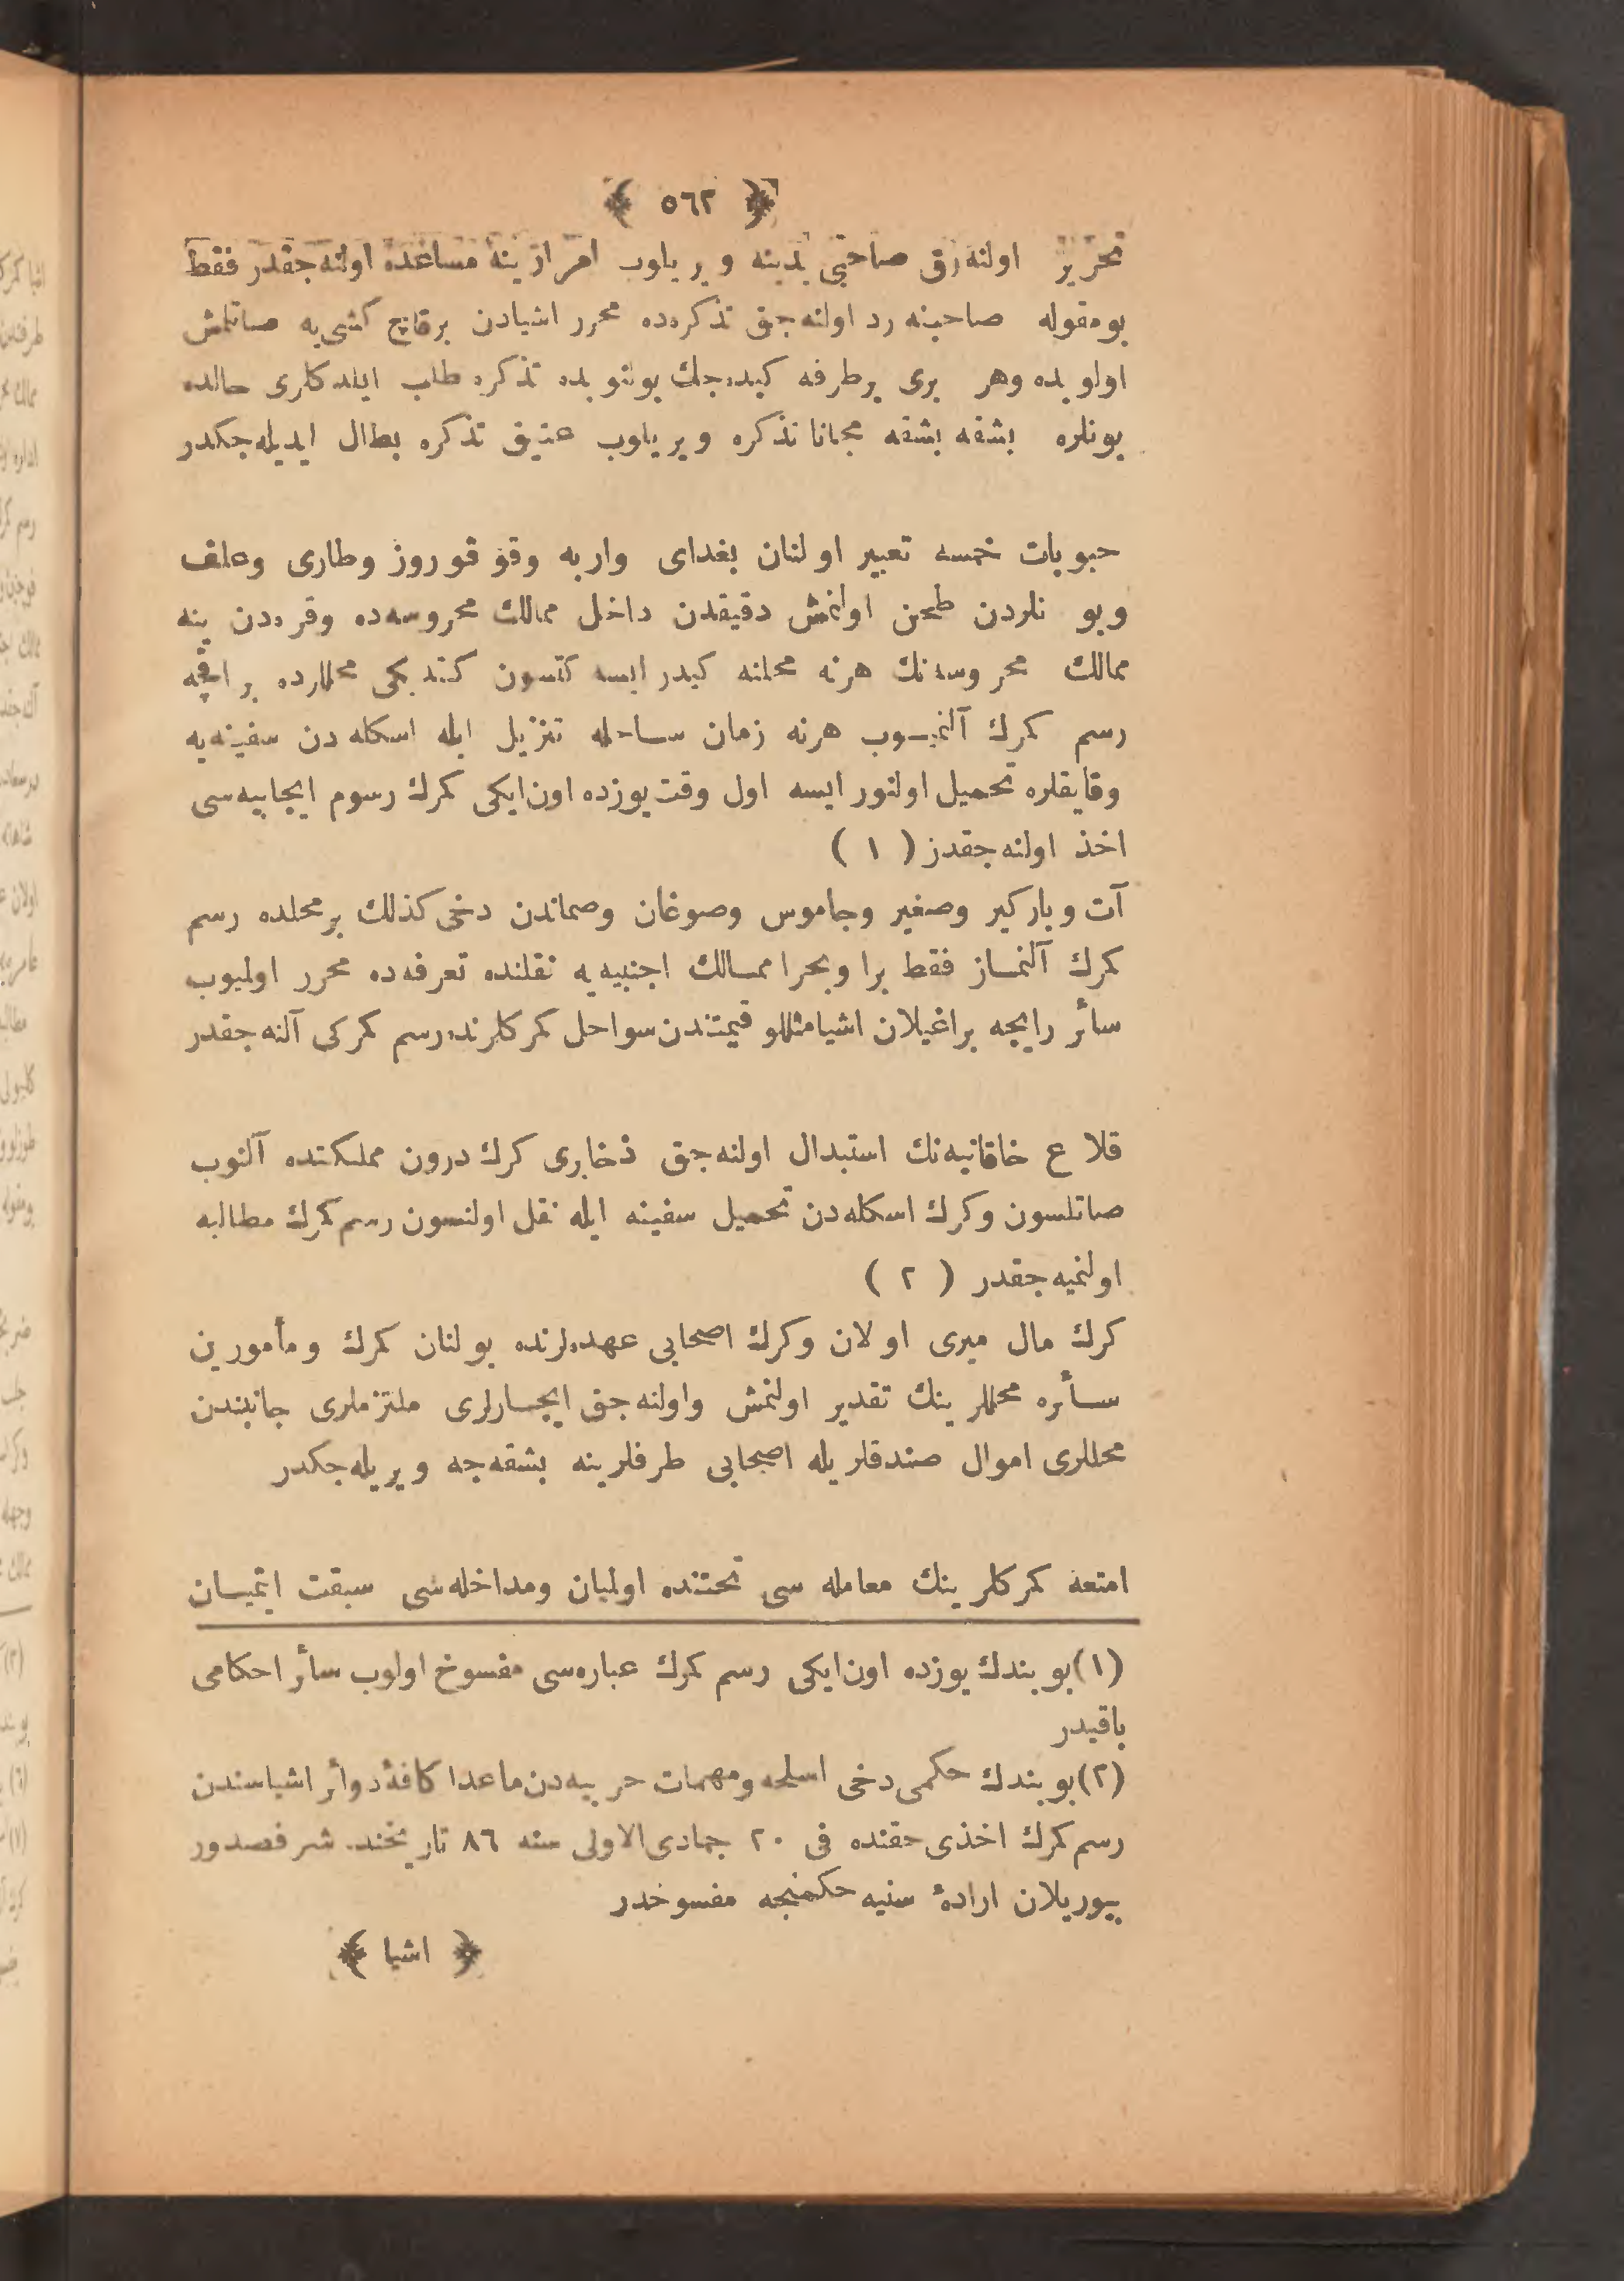 ﴿ ٥٦٢ ﴾
تحریر اولنه‌رق صاحبی یدینه ویریلوب امرارینه مساعده اولنه‌جقدر فقط
بومقوله صاحبنه رد اولنه‌جق تذکره‌ده محرر اشیادن برقاچ کشی‌یه صاتلمش
اولوبده وهر بری برطرفه کیده‌جك بولنوبده تذکره طلب ایلدکلری حالده
بونلره بشقه بشقه مجانا تذکره ویریلوب عتیق تذکره بطال ایدیله‌جکدر
حبوبات خمسه تعبیر اولنان بغدای واربه وقوقوروز وطاری وعلف
وبو نلردن طحن اولنمش دقیقدن داخل ممالك محروسه‌ده وقره‌دن ینه
ممالك محروسه‌نك هرنه محلنه کیدر ایسه کتسون کتدیکی محللرده بر اقچه
رسم کمرك آلنمیوب هرنه زمان ساحله تنزیل ایله اسکله‌دن سفینه‌یه
وقایقلره تحمیل اولنور ایسه اول وقت یوزده اون‌ایکی کمرك رسوم ایجابیه‌سی
اخذ اولنه‌جقدر ( ١ )
آت وبارکیر وصغیر وجاموس وصوغان وصماندن دخی کذلك برمحلده رسم
کمرك آلنماز فقط برا وبحرا ممالك اجنبیه‌یه نقلنده تعرفه‌ده محرر اولمیوب
سائر رایجه براغیلان اشیا مثللو قیمتندن سواحل کمرکلرنده رسم کمرکی آلنه‌جقدر
قلاع خاقانیه‌نك استبدال اولنه‌جق ذخایری کرك درون مملکتده آلنوب
صاتلسون وکرك اسکله‌دن تحمیل سفینه ایله نقل اولنسون رسم کمرك مطالبه
اولنمیه‌جقدر ( ٢ )
کرك مال میری اولان وکرك اصحابی عهده‌لرنده بولنان کمرك ومأمورین
سائره محللرینك تقدیر اولنمش واولنه‌جق ایجارلری ملتزملری جانبندن
محللری اموال صندقلریله اصحابی طرفلرینه بشقه‌جه ویریله‌جکدر
امتعه کمرکلرینك معامله‌سی تحتنده اولمیان ومداخله‌سی سبقت ایتمیان
(١) بو بندك یوزده اون‌ایکی رسم کمرك عباره‌سی مفسوخ اولوب سائر احکامی
باقیدر
(٢) بو بندك حکمی دخی اسلحه ومهمات حربیه‌دن ماعدا کافهٔ دوائر اشیاسندن
رسم کمرك اخذی حقنده فی ٢٠ جمادی‌الاولی سنه ٨٦ تاریخنده شرفصدور
بیوریلان ارادهٔ سنیه حکمنجه مفسوخدر
﴿ اشیا ﴾